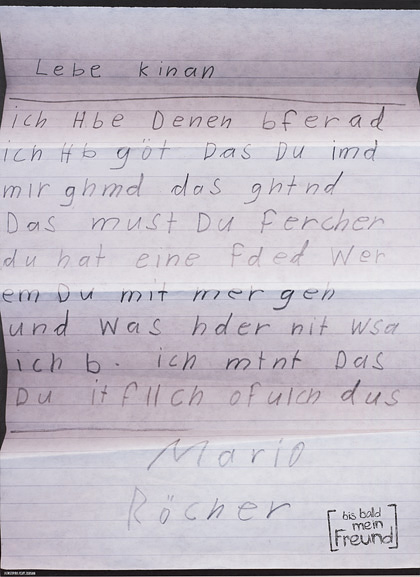 Lebe kinan
ich Hbe Denen bferad
ich Hb göt Das Du imd
mir ghmd das ghtnd
Das must Du Fercher
du hat eine Fded Wer
em Du mit mer geh
und Was hder nit wsa
ich b. ich mtnt Das
Du it fllch ofulch dus
Mario
Röcher
bis bald
mein
Freund